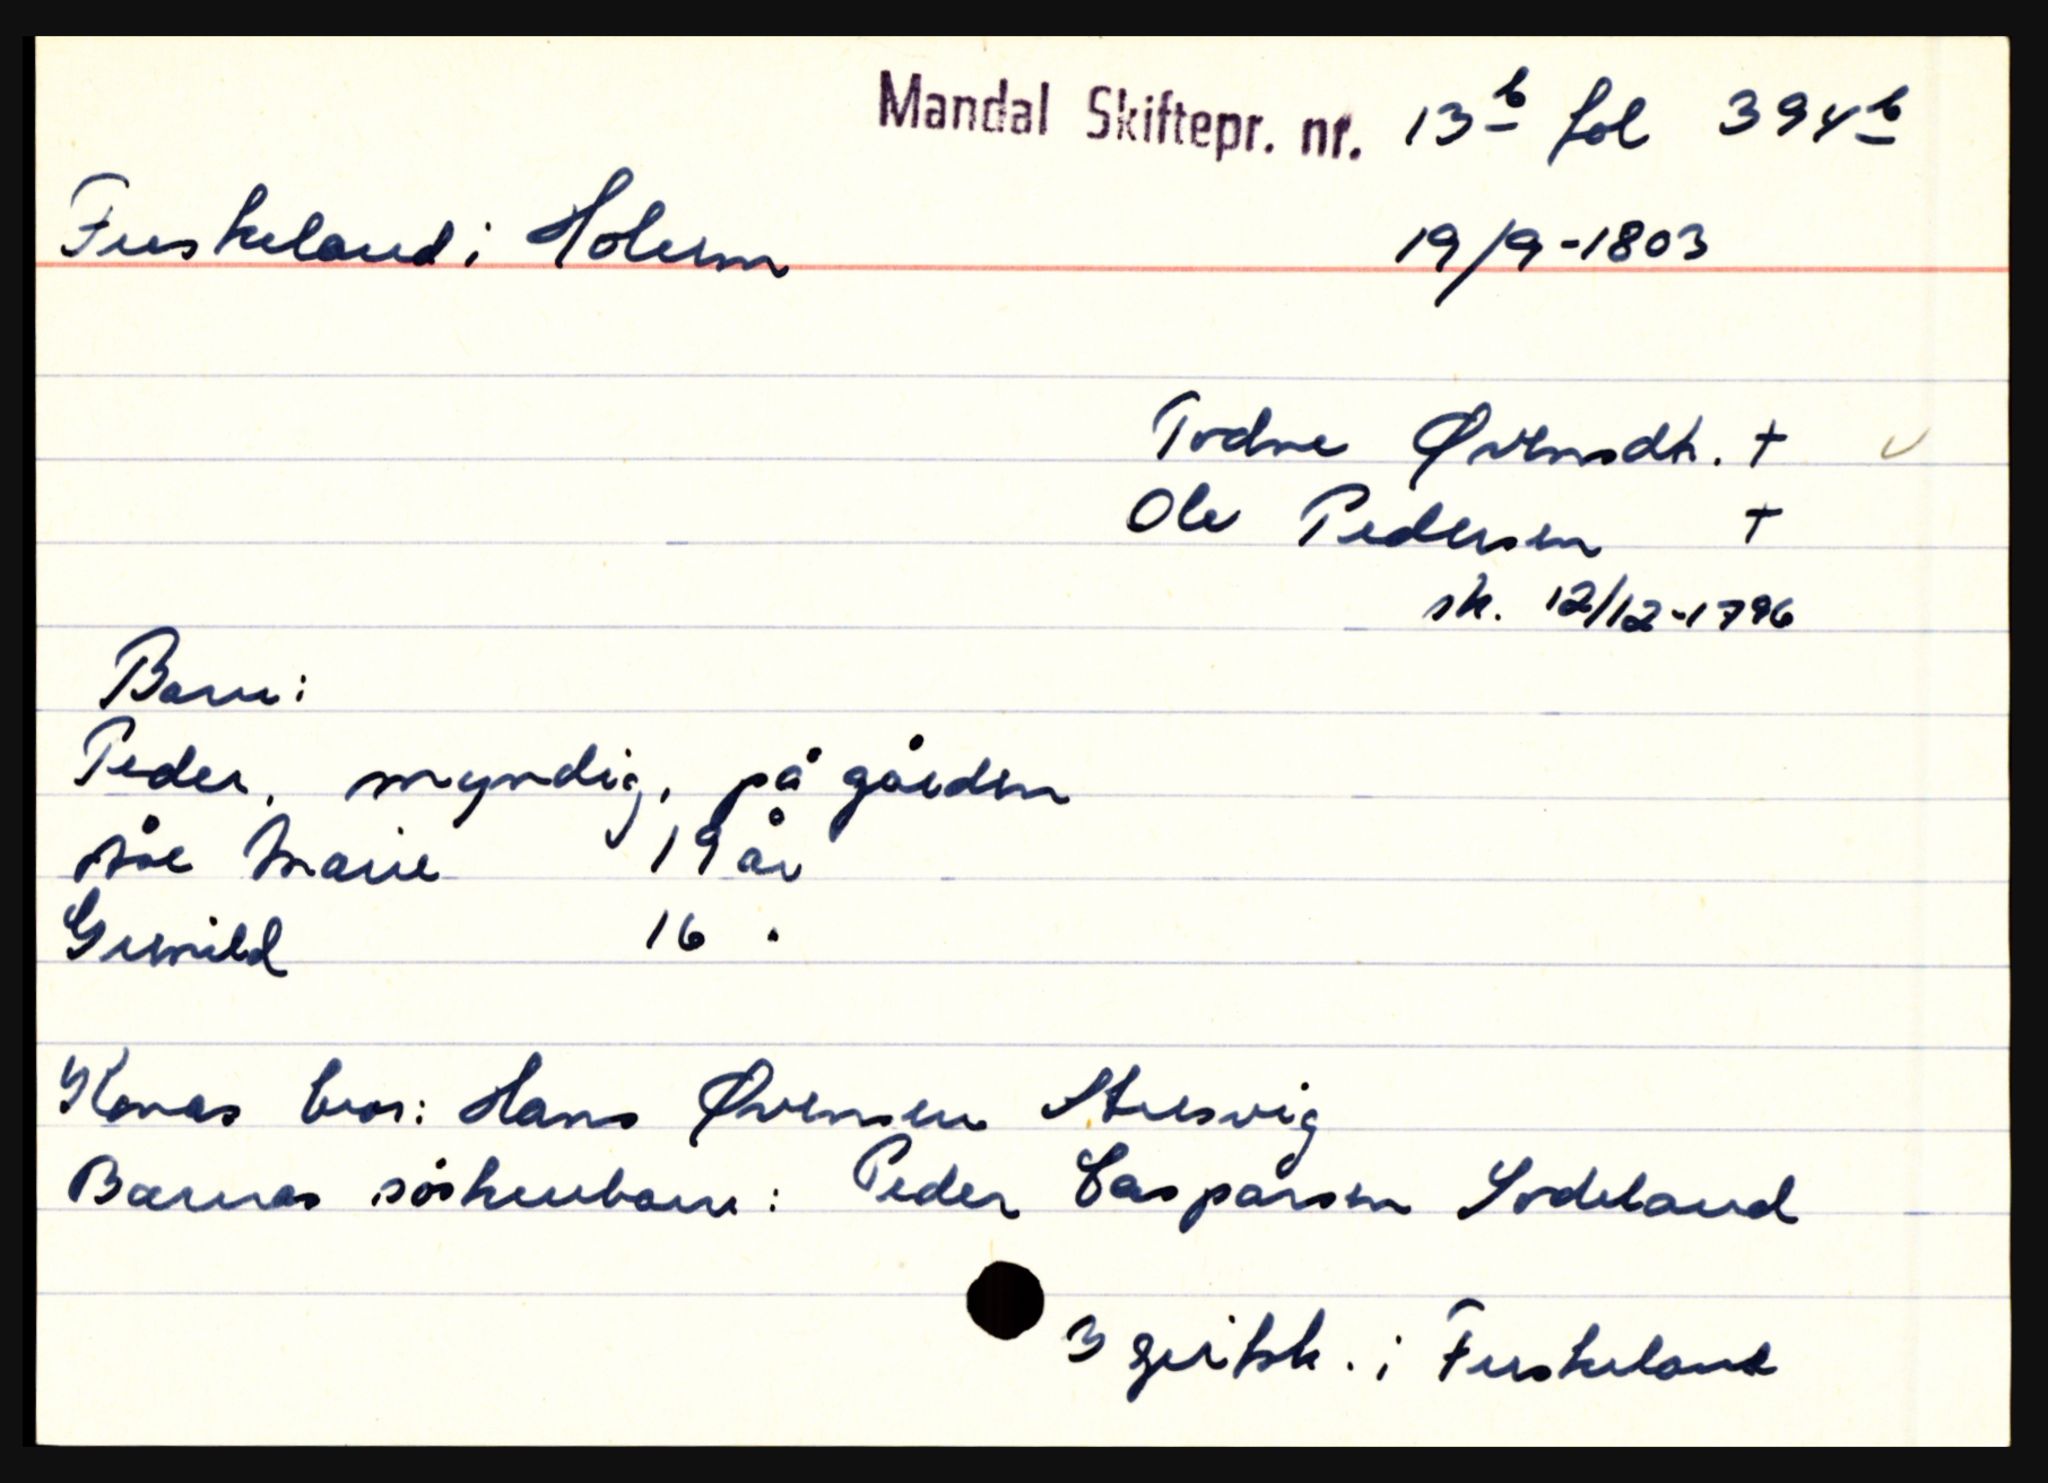 Mandal Skiftepr. nr. 13b fol 394b
Fuskeland i Holum 19/9-1803
Todne Øvensdtr. +
Ole Pedersen +
sk. 12/12-1796
Barn:
Peder, myndig, på gården
Marie 19 år
Gunild 16 "
Konas bror: Hans Øvensen Stusvig
Barnas søskenbarn: Peder Casparsen Sodeland
3 gritsk. i Fuskeland